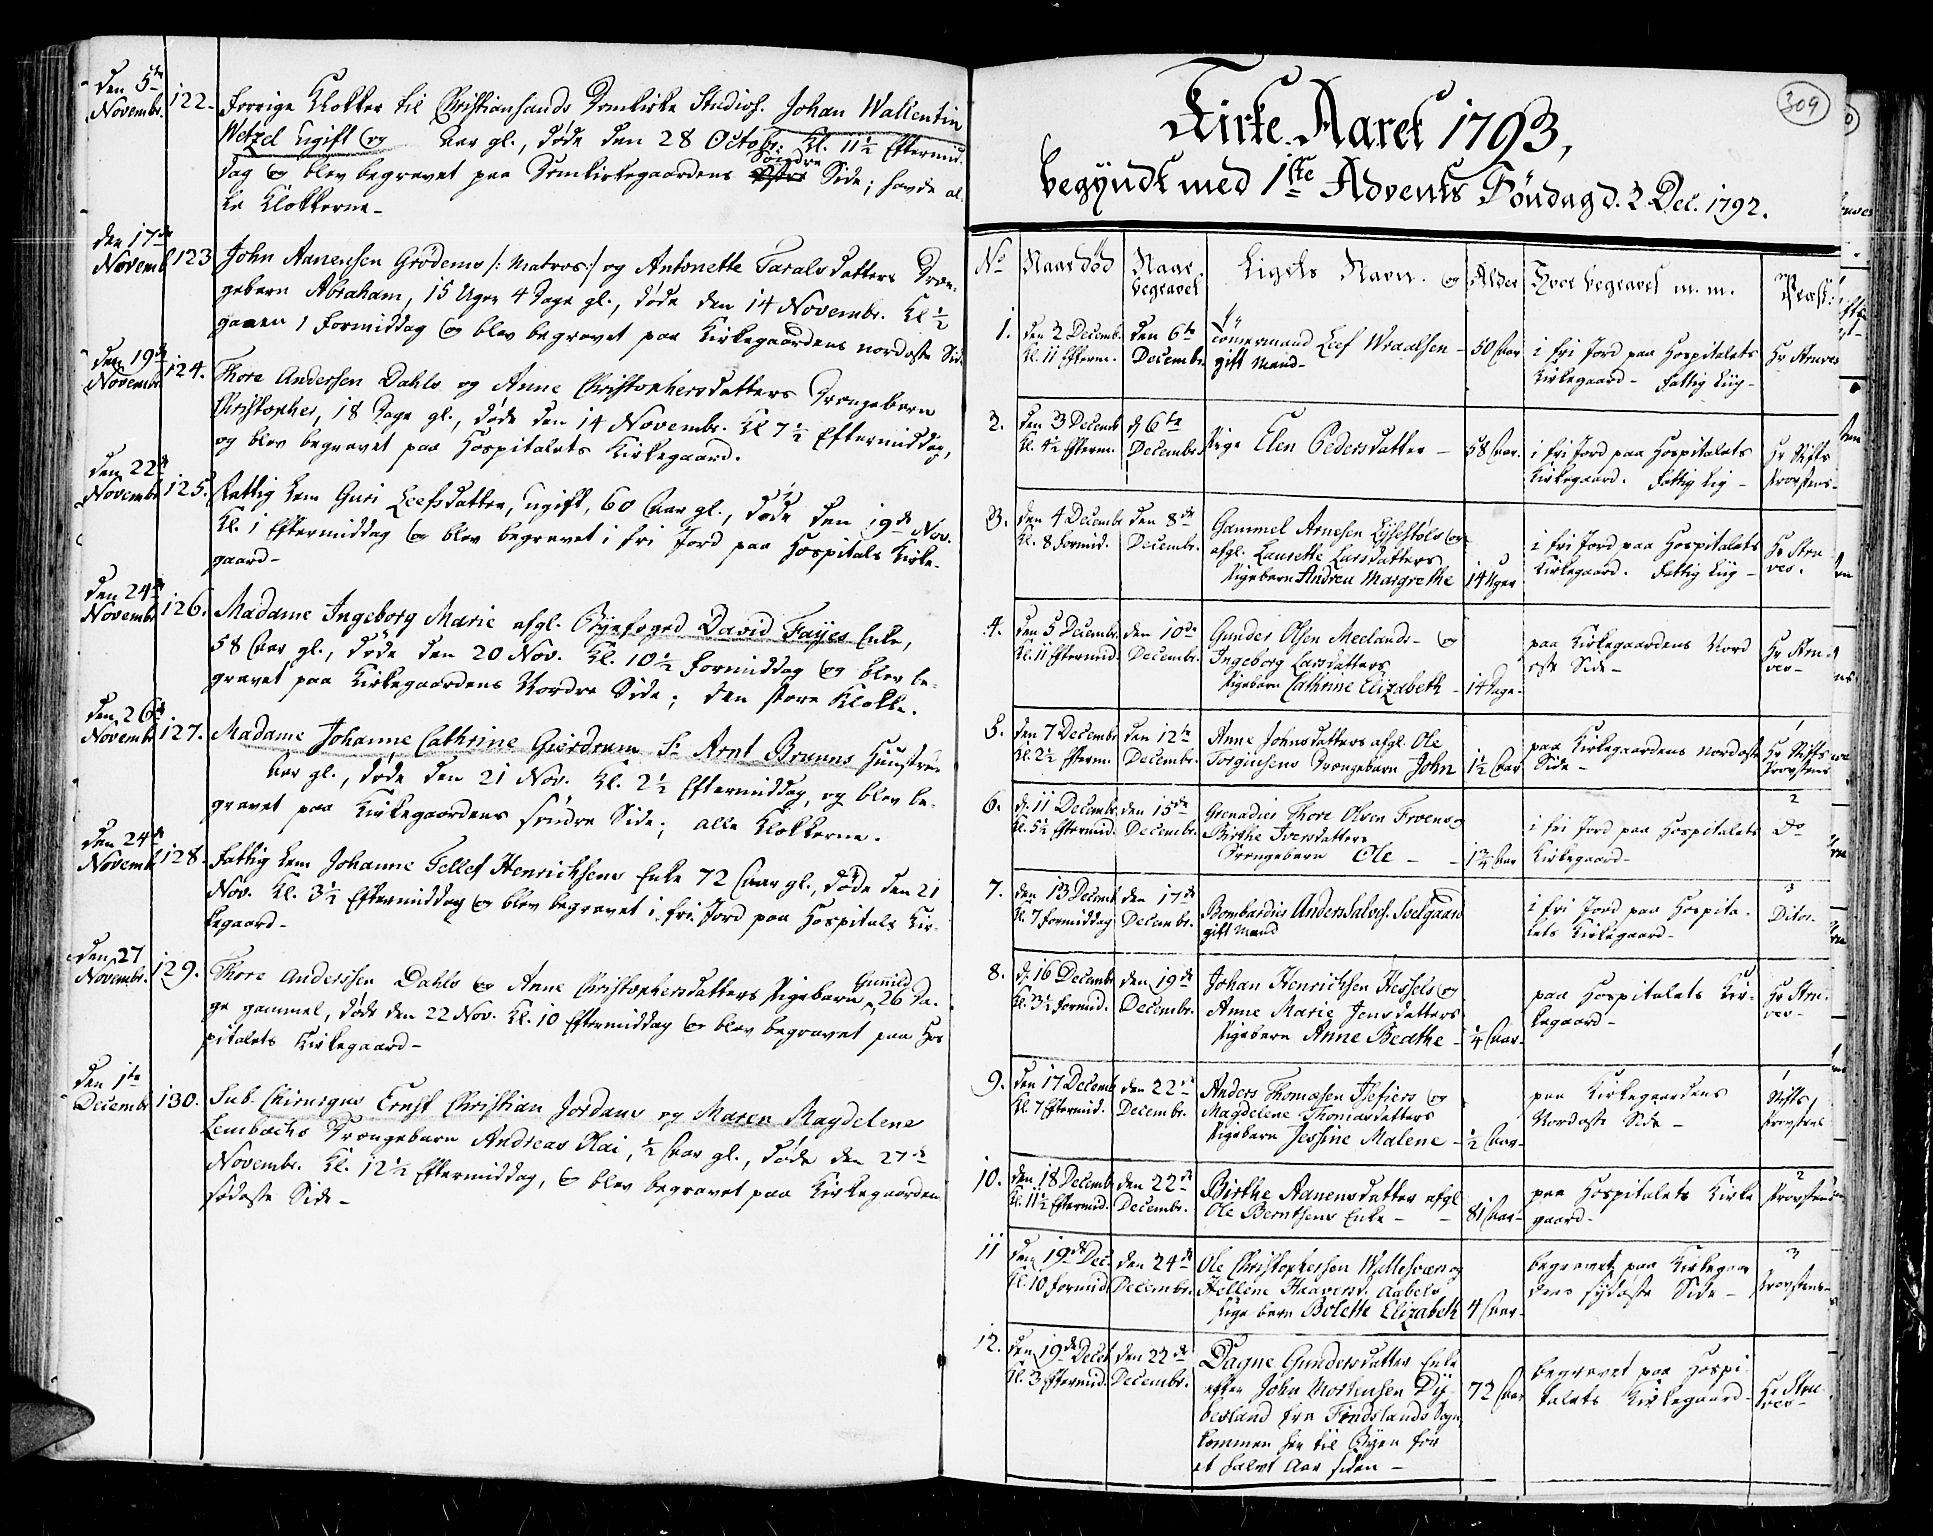 den 5te
Novembr.
122.
forrige Klokker til Christiansands Domkirke Studios. Johan Wallentin
Wetzel ugift og Aar gl., døde den 28 Octobr: Kl. 11½ Eftermid-
dag og blev begravet paa Domkirkegaardens Søndre Side; havde al-
le Klokkerne-
den 17de
Novemb
123
John Aanensen Grödems /: Matros:/ og Antonette Taralsdatters Dren-
gebarn Abraham, 15 Uger 4 Dage gl., døde den 14 Novembr. Kl ½
gaaen 1 Formiddag og blev begravet paa Kirkegaardens nordøste Side
den 19de
Novembr.
124.
Thore Andersen Dahls og Anne Christophersdatters Drengebarn
Christopher, 18 Dage gl., døde den 14 Novembr. Kl 7½ Eftermiddag,
og blev begravet paa Hospitalets Kirkegaard.
den 22de
Novembr
125.
Fattig Lem Guri Leefsdatter, ugift, 60 Aar gl., døde den 19de Nov.
Kl. 1 Eftermiddag og blev begravet i fri Jord paa Hospitals Kirke-
gaard-
den 24de
Novembr
126.
Madame Ingeborg Marie afgl. Byefoged David Fayes Enke,
58 Aar gl., døde den 20 Nov. Kl. 10½ Formiddag og blev be-
gravet paa Kirkegaardens Nordre Side; den store Klokke.
den 26de
Novembr
127.
Madame Johanne Cathrine Gierdrum Sr Arnt Bruuns Huustrue
Aar gl., døde den 21 Nov. Kl. 2½ Eftermiddag, og blev be-
gravet paa Kirkegaardens søndre Side; alle Klokkerne.
den 24de
Novemb
128.
Fattig Lem Johanne Tellef Henrichsens Enke 72 Aar gl., døde den 21
Nov. Kl. 3½ Eftermiddag og blev begravet i fri Jord paa Hospitals Kir-
kegaard-
den 27
Novembr.
129.
Thore Anderssen Dahls og Anne Christophersdatters Pigebarn Gunnild 26 Da-
ge gammel, døde den 22 Nov. Kl. 10 Eftermiddag og blev begravet paa Hos
pitalets Kirkegaard-
den 1te
Decembr
130.
Sub. Chirurgus Ernst Christian Jordans og Maren Magdelene
Lembachs Drengebarn Andreas Olai, ½ Aar gl., døde den 27de
Novembr. Kl. 12½ Eftermiddag, og blev begravet paa Kirkegaarden
sødøste Side-
309
Kirke-Aaret 1793,
begyndt med 1ste Advents Söndag d. 2 Dec. 1792.
No Naar død Naar begravet Ligets Navn. og Alder Hvor begravet m. m. Præst:
1. den 2 Decemb. den 6te Tömermand Leef Wraalsen - 50 Aar i fri Jord paa Hospitalets Hr Struves
Kl. 11 Efterm. Decembr. gift Mand- Kirkegaard- Fattig Liig-
2. den 3 Decemb d 6te Pige Elen Pedersdatter - 58 Aar. i fri Jord paa Hospitalets Hr Stifts
Kl. 4½ Efterm. Decembr. Kirkegaard. Fattig Lig- Provstens-
3. den 4 Decembr den 8de Gammel Arnesen Lysestöls og i fri Jord paa Hospitalets Hr Stru-
Kl. 8 Formid. Decembr. afgl. Laurette Larsdatters Kirkegaard. Fattig Liig- ves.
Pigebarn Andrea Margrethe 14 Uger
4. den 5 Decembr. den 10de Gunder Olsen Meelands- og paa Kirkegaardens Nord Hr Stru-
Kl. 11 Eftermid. Decembr. Ingeborg Larsdatters øste Side- ves-
Pigebarn Cathrine Elizabeth - 14 Dage-
5. den 7 Decembr den 12te Anne Johnsdatters afgl. Ole paa Kirkegaardens nordøste 1 Hr Stifts
Kl. 2½ Efterm. Decembr. Torginsens Drengebarn John 1½ Aar Side- Provstens
6. d. 11 Decembr. den 15de Grenadier Thore Olsen Troens og i fri Jord paa Hospitalets 2 Do
Kl. 5½ Eftermid. Decembr. Birthe Iversdatters Kirkegaard-
Drengebarn Ole - - 1¾ Aar
7. den 13 Decemb den 17de Bombardier Anders Salves. Svelgaard i fri Jord paa Hospita- 3 Dito-
Kl. 7 Formiddag Decembr. gift Mand lets Kirkegaard-
8. d. 16 Decembr den 19de Johan Henrichsen Hessels og paa Hospitalets Kir- Hr Stru-
Kl. 3½ Formid. Decembr. Anne Marie Jensdatters kegaard- ves-
Pigebarn Anne Beathe - ¼ Aar-
9. den 17 Decemb den 22de Anders Thomasen og paa Kirkegaardens 1 Stifts
Kl. 7 Eftermid. Decembr. Magdelene Thomasdatters Nordøste Side- Provstens
Pigebarn Jessine Malene - ½ Aar-
10. den 18 Decemb den 22de Birthe Aanensdatter afgl paa Hospitalets Kirke 2 Provstens
Kl. 11½ Eftermid. Decembr. Ole Berntsens Enke - - 81 Aar- gaard-
11 den 19de Dec. den 24de Ole Christophersen og begravet paa Kirkegaar 3 Provstens-
Kl. 10 Formid Decembr. Hellene Haaversd. Aabels dens sydøste Side-
Pige barn Bolette Elizabeth 4 Aar-
12. den 19de Decbr den 22de Dagne Gundersdatter Enke 72 Aar begravet paa Hospi- Hr Stru-
Kl. 3 Eftermid. Decembr. efter John Mortensen Dy- talets Kirkegaard- ves-
besland fra Findslands Sogn
kommen her til Byen for
et halvt Aar siden-